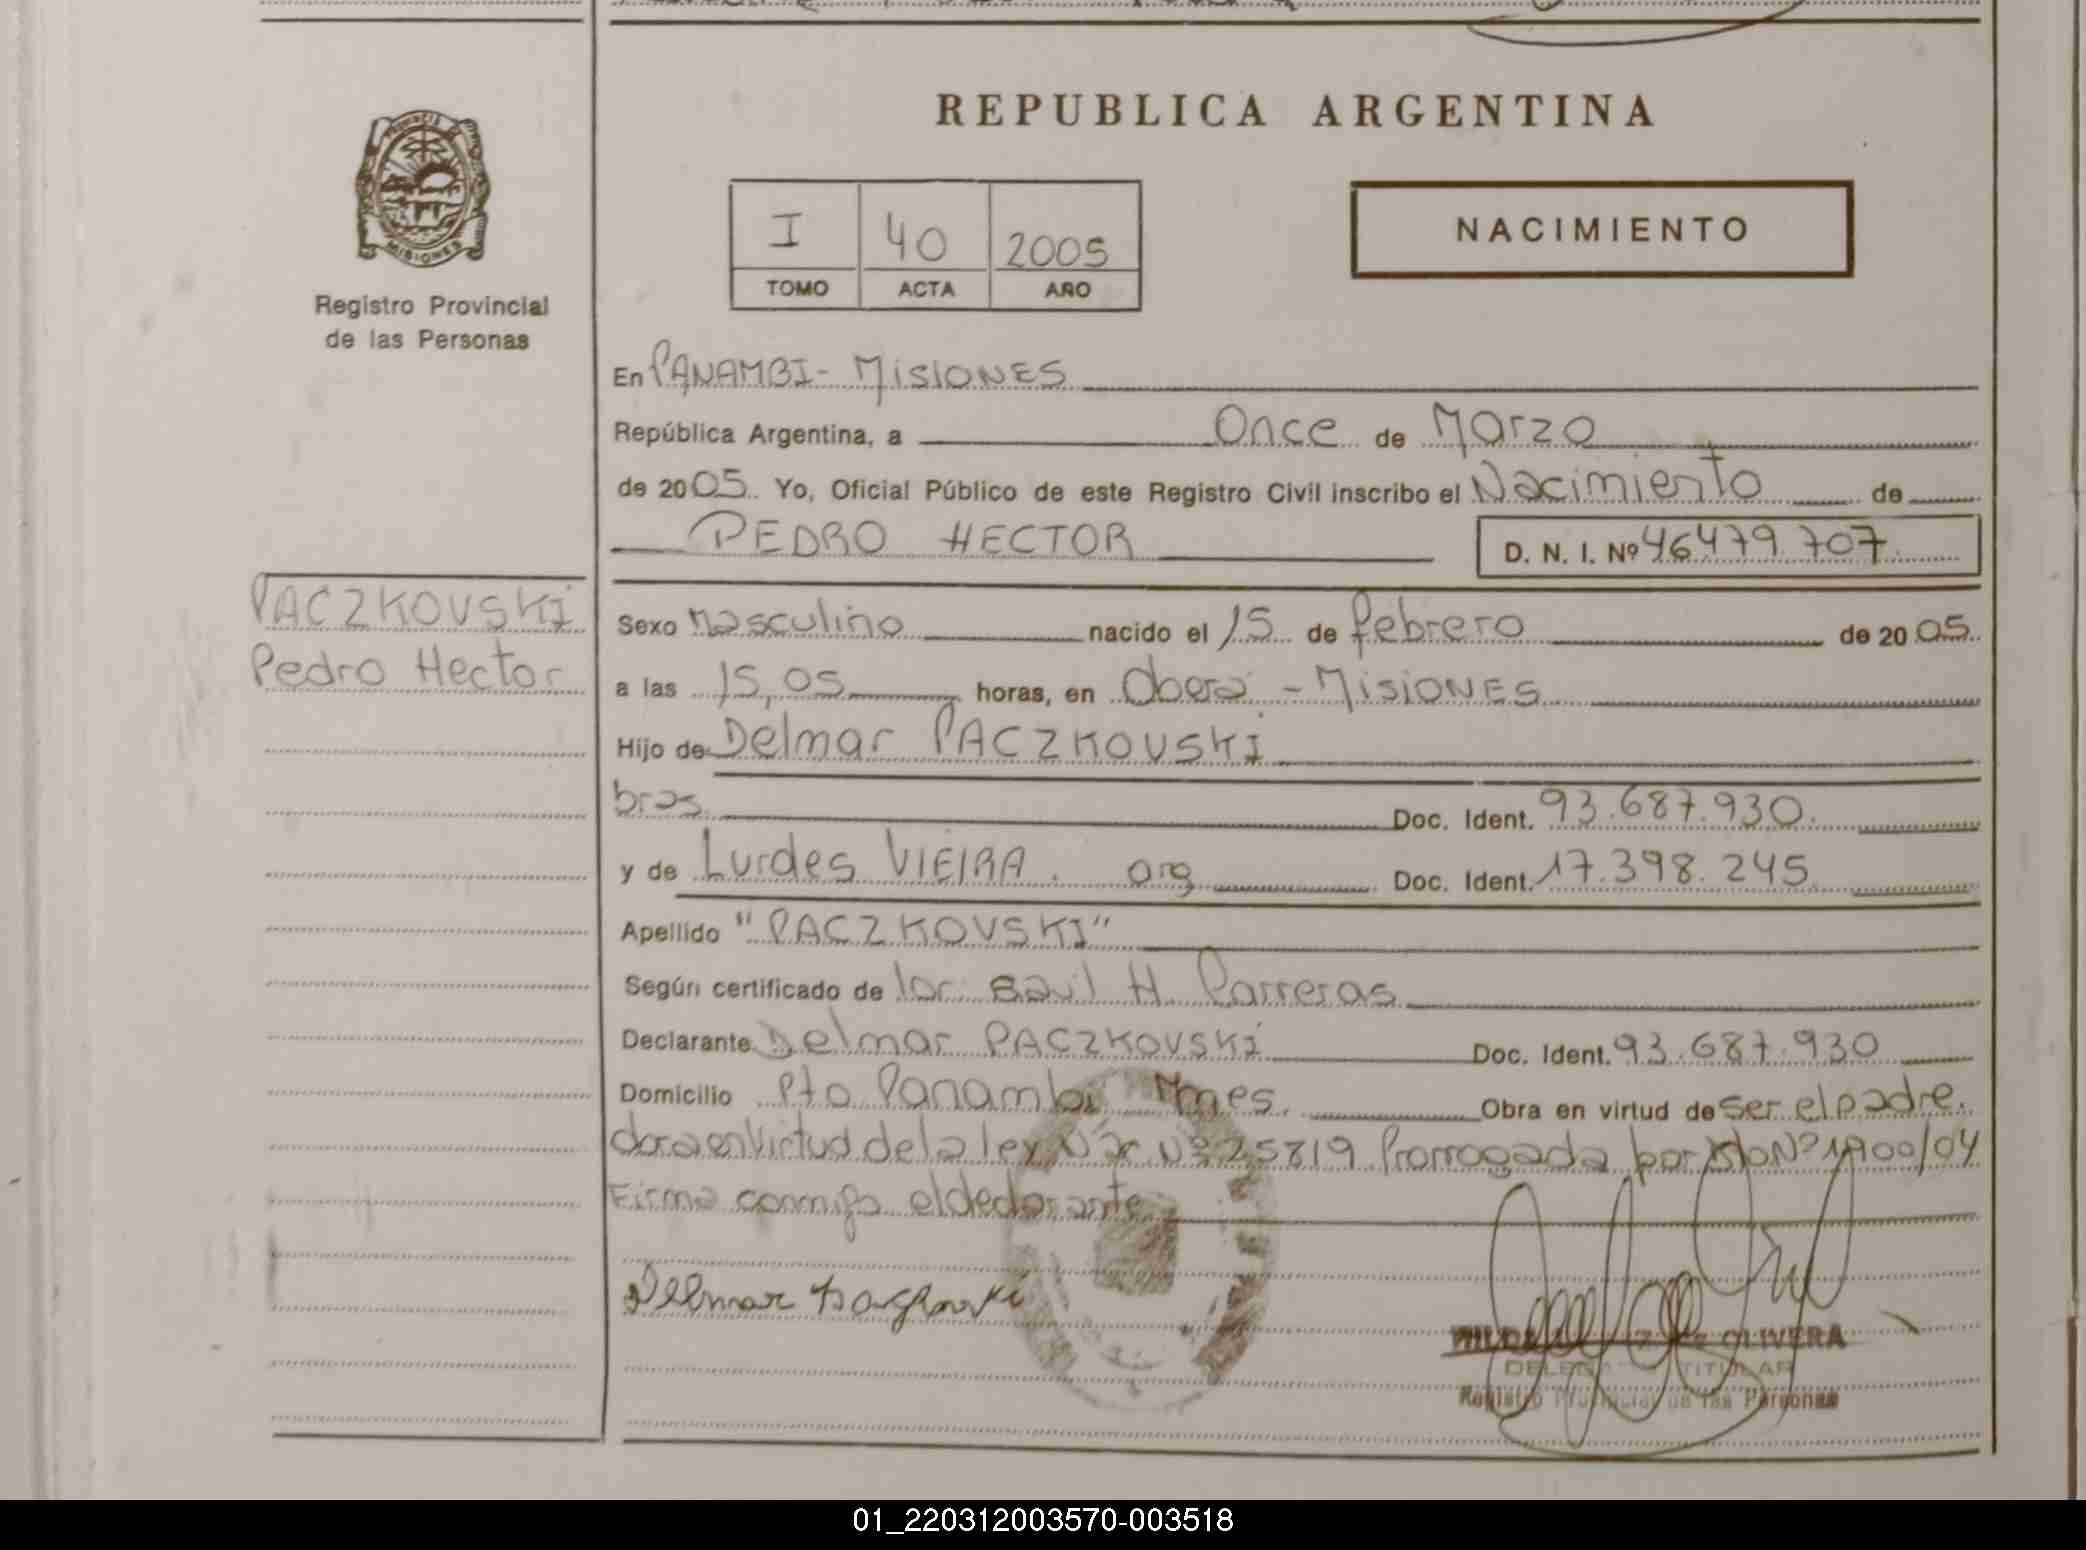 REPUBLICA ARGENTINA
PROVINCIA DE
MISIONES
Registro Provincial
de las Personas
I 40 2005
TOMO ACTA AÑO
NACIMIENTO
En PANAMBI - MISIONES
República Argentina, a Once de Marzo
de 2005. Yo, Oficial Público de este Registro Civil inscribo el Nacimiento de
PEDRO HECTOR D. N. I. Nº 46479.707
PACZKOVSKI
Pedro Hector
Sexo Masculino nacido el 15 de febrero de 2005.
a las 15,05 horas, en Oberá - MISIONES
Hijo de Delmar PACZKOVSKI
bras. Doc. Ident. 93.687.930.
y de Lurdes VIEIRA. arg Doc. Ident. 17.398.245
Apellido "PACZKOVSKI"
Según certificado de Saul H. Parreras
Declarante Delmar PACZKOVSKI Doc. Ident. 93.687.930
Domicilio Pto Panambi Mnes. Obra en virtud de ser el padre.
en virtud de la ley Nº 25819 Prorrogada por Nº 1900/04
Firma conmigo el declarante
Delmar
OLIVERA
TITULAR
Registro Provincial de las Personas
01_220312003570-003518